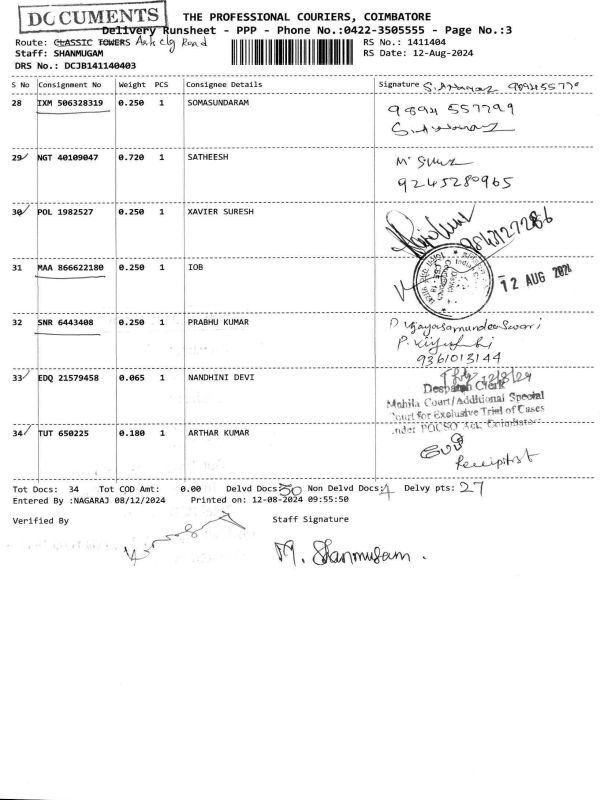 DOCUMENTS
THE PROFESSIONAL COURIERS, COIMBATORE
Delivery Runsheet - PPP - Phone No.:0422-3505555 - Page No.:3
Route: CLASSIC TOWERS Road
RS No.: 1411404
Staff: SHANMUGAM
RS Date: 12-Aug-2024
DRS No.: DCJB141140403
S No Consignment No Weight PCS Consignee Details Signature
28 IXM 506328319 0.250 1 SOMASUNDARAM
29 NGT 40109047 0.720 1 SATHEESH
9245280965
30 POL 1982527 0.250 1 XAVIER SURESH
31 MAA 866622180 0.250 1 IOB
12 AUG 2024
32 SNR 6443408 0.250 1 PRABHU KUMAR
9361013144
33 EDQ 21579458 0.065 1 NANDHINI DEVI
12/8/24
Despatch Clerk
Mahila Court/Additional Special
Court for Exclusive Trial of Cases
under POCSO Act, Coimbatore
34 TUT 650225 0.180 1 ARTHAR KUMAR
Tot Docs: 34 Tot COD Amt: 0.00 Delvd Docs: 30 Non Delvd Docs: 4 Delvy pts: 27
Entered By :NAGARAJ 08/12/2024 Printed on: 12-08-2024 09:55:50
Verified By Staff Signature
M. Shanmugam.